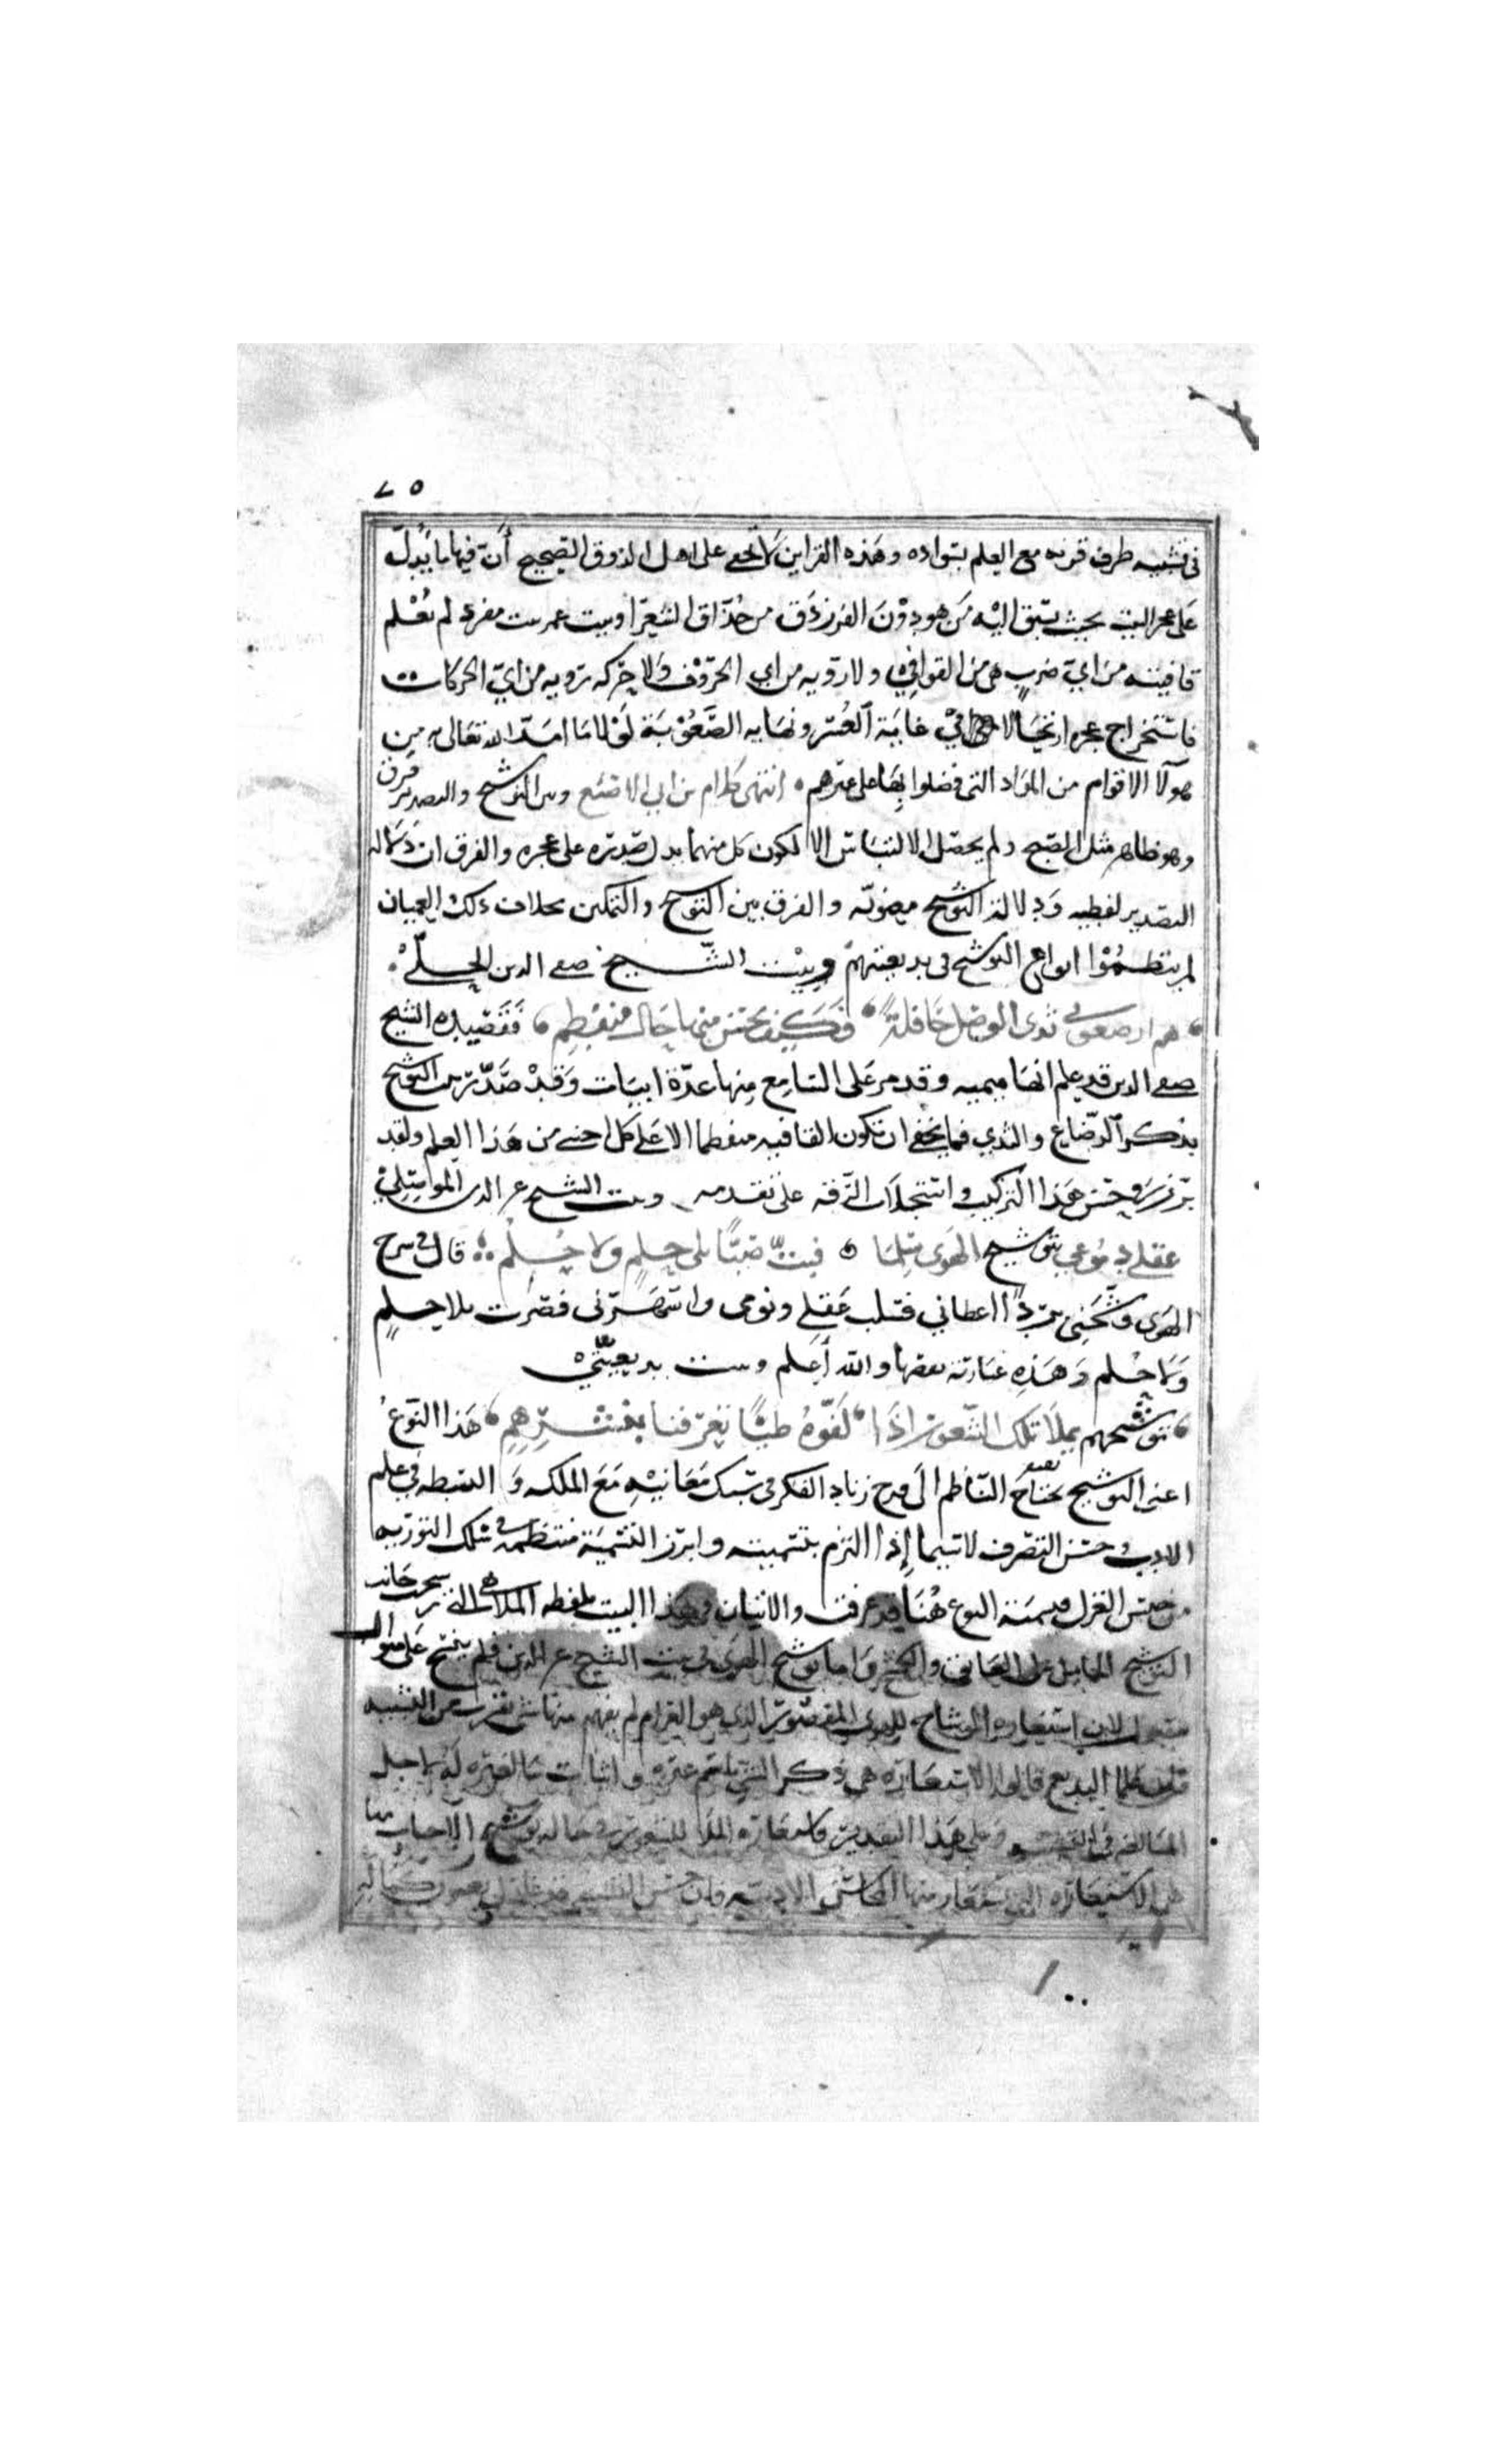 ٢٥
في تشبيه طرف قرنه مع العلم بسواده وهذه القراين لا تخفى على اهل الذوق الصحيح أن فيها ما يدل
على عجز البيت بحيث يسبق اليه من هو دون الفرزدق من حذاق الشعرا وبيت عمر بيت مفرد لم تعلم
قافيته من اي ضرب هي من القوافي ولا رويه من اي الحروف ولا حركة رويه من اي الحركات
فاستخراج عجزه ارتجالا في غاية العسر ونهايه الصعوبة لولا ما امد الله تعالى به من
هولا الاقوام من المواد التي فضلوا بها على غيرهم انتهى كلام بن ابي الاصبع وبين التوشيح والتصدير فرق
وهو ظاهر مثل الصبح ولم يحصل الالتباس الا لكون كل منهما يدل صدره على عجزه والفرق ان دلالة
التصدير لفظيه ودلالة التوشيح معنويه والفرق بين التوشيح والتمكين بخلاف ذلك العميان
لم ينظموا انواع التوشيح في بديعيتهم وبيت الشيخ صفي الدين الحلي
هم ارضعوني ثدى الوصل حافلة فكيف يحسن منها حال منفطم فقصيده الشيخ
صفي الدين قد علم انها ميميه وقد مر على السامع منها عدة ابيات وقد صدر بيت التوشيح
بذكر الرضاع والثدي فما يخفى ان تكون القافيه منفطما الا على كل اجنبي من هذا العلم ولقد
برز في حسن هذا التركيب واستجلاب الرقه على تقدمه وبيت الشيخ عز الدين الموصلي
عقلي دموعي بتوشيح الهوى سلبا فبت صبا بلى حلم ولا حلم قال في شرح
الهوى وشحني برد اعطاني فسلب عقلي ونومى واسهرني فصرت بلا حلم
ولا حلم وهذه عبارته بنصها والله أعلم وبيت بديعيتي
توشيحهم بملا تلك الشعور اذا لفوه طيا تعرفنا بنشرهم هذا النوع
اعني التوشيح يحتاج الناظم الى قدح زناد الفكر في سبك معانيه مع الملكه والبسطه في علم
الادب وحسن التصرف لا سيما إذا التزم بتسميته وابرز التسمية منتظمه في سلك التوريه
من جنس الغزل فتسمية النوع هنا قد عرفت والاتيان في هذا البيت بلفظه الملا هي التي رجحت جانب
التوشيح الحامل على العاتق والكشح واما توشيح الهوى في بيت الشيخ عز الدين فلم ينسج على منوال
مقبول لان استعاره الوشاح للهوى المقصور الذي هو الغرام لم يفهم منها شي يقرب من التشبيه
فان علما البديع قالوا الاستعاره هي ذكر الشي باسم غيره واثبات ما لغيره له لاجل
المبالغه في التشبيه وعلى هذا التقدير فاستعاره الملا للشعور في حاله توشيح الاحباب بها
هي الاستعاره التي تستعار منها المحاسن الادبيه فان حسن التشبيه